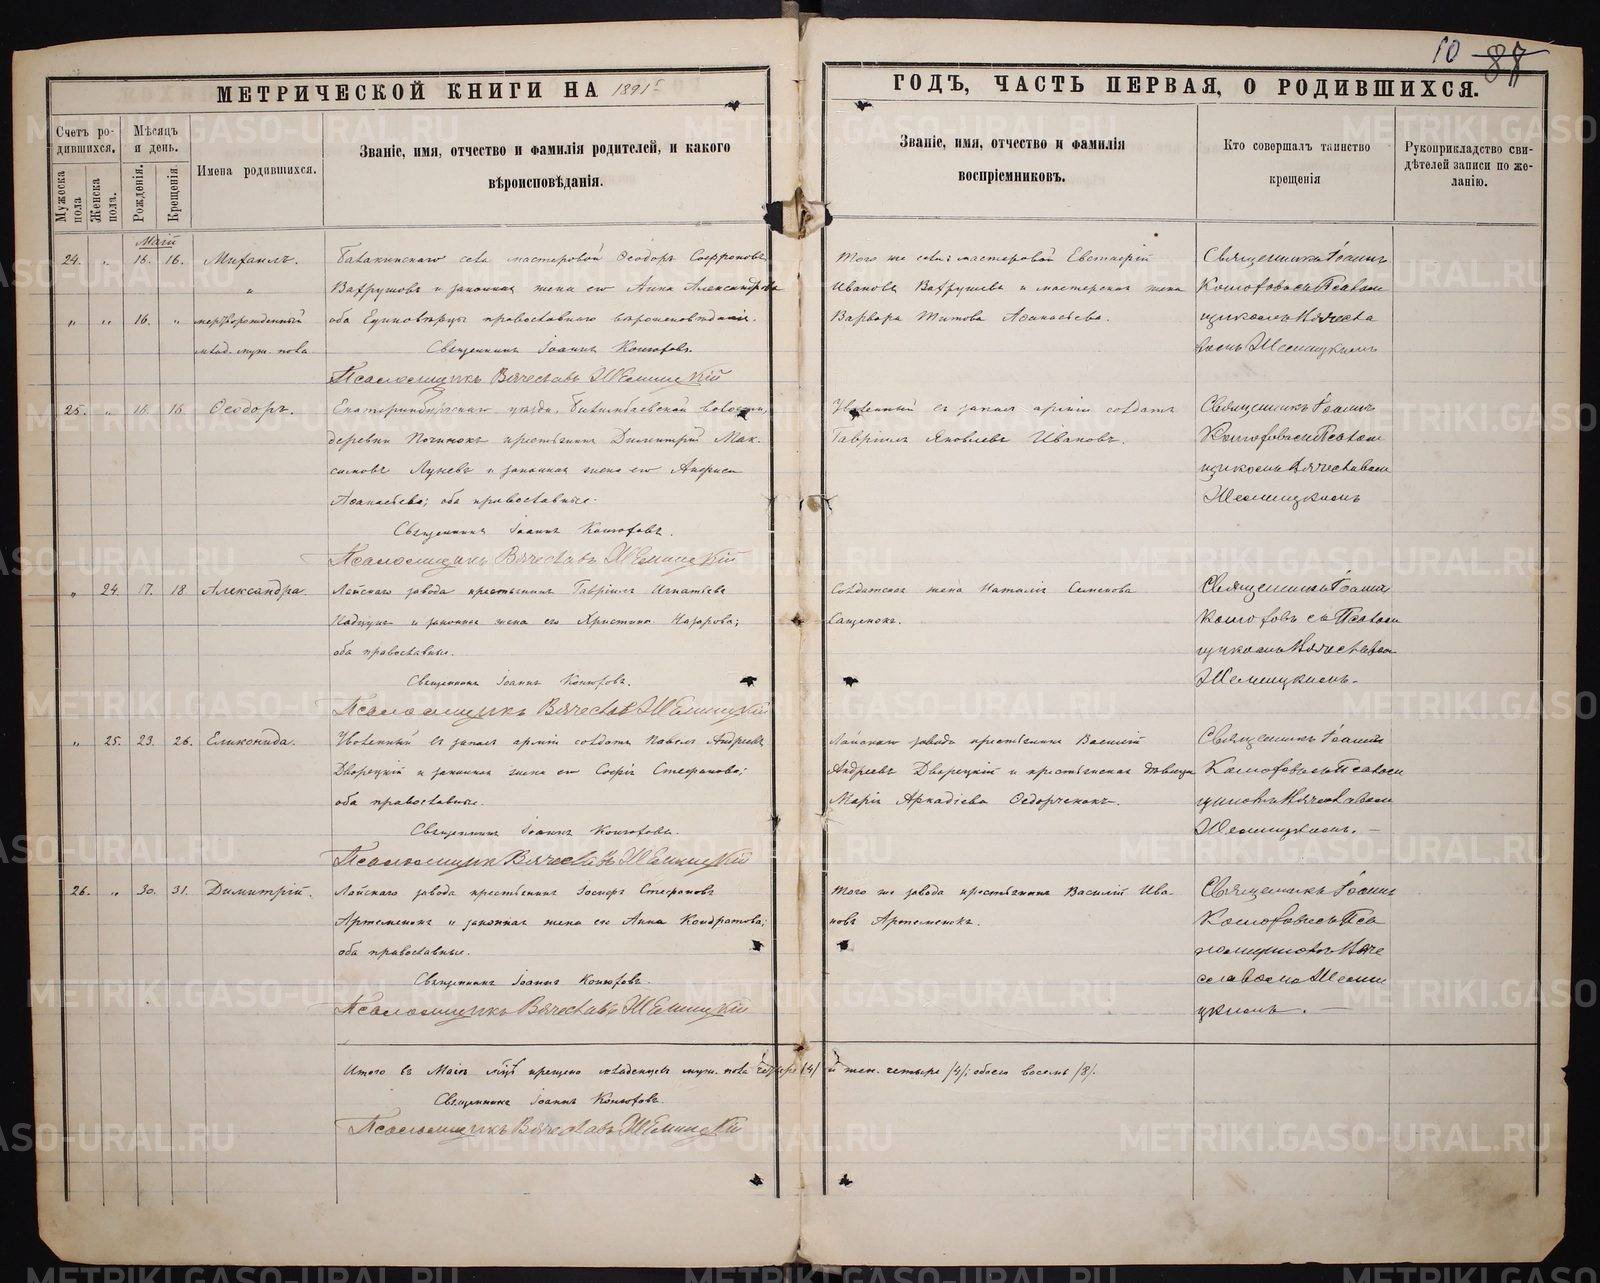 10 87
МЕТРИЧЕСКОЙ КНИГИ НА 1891 г.
ГОДЪ, ЧАСТЬ ПЕРВАЯ, О РОДИВШИХСЯ.
Счетъ родившихся.
Мужеска пола
Женска пола.
Мѣсяцъ и день.
Рожденія.
Крещенія.
Имена родившихся.
Званіе, имя, отчество и фамилія родителей, и какого
вѣроисповѣданія.
Званіе, имя, отчество и фамилія
воспріемниковъ.
Кто совершалъ таинство
крещенія
Рукоприкладство сви-
дѣтелей записи по же-
ланію.
Май
24. „ 16. 16. Михаилъ.
Балакинскаго села мастеровой Ѳеодоръ Софроновъ
„ Вахрушовъ и законная жена его Анна Александрова
„ „ 16. „ мертворожденный
оба Единовѣрцы православнаго вѣроисповѣданія.
млад. муж. пола
Священникъ Іоаннъ Конюховъ.
Псаломщикъ Вячеславъ
Того же села: мастеровой
Ивановъ Вахрушевъ и мастерская жена
Варвара Титова Аѳанасьева.
Священникъ Іоаннъ
Конюховъ съ Псалом
щикомъ Вячесла
вомъ
25. „ 16. 16. Ѳеодоръ.
Екатеринбургскаго уѣзда, Билимбаевской волости,
деревни Починокъ крестьянинъ Димитрій Мак-
симовъ и законная жена его
Аѳанасьева; оба православные.
Священникъ Іоаннъ Конюховъ.
Псаломщикъ Вячеславъ
Уволенный въ запасъ арміи солдатъ
Гавріилъ Яковлевъ Ивановъ.
Священникъ Іоаннъ
Конюховъ съ Псалом
щикомъ Вячеславом
„ 24. 17. 18 Александра.
Лайскаго завода крестьянинъ Гавріилъ Игнатьевъ
и законная жена его Христина Назарова;
оба православные.
Священникъ Іоаннъ Конюховъ.
Псаломщикъ Вячеславъ
Солдатская жена Наталія Семенова
Сащенокъ.
Священникъ Іоаннъ
Конюховъ съ Псалом
щикомъ Вячеславом
„ 25. 23. 26. Еликонида.
Уволенный въ запасъ арміи солдатъ Павелъ Андреевъ
Дворецкій и законная жена его Софія Стефанова;
оба православные.
Священникъ Іоаннъ Конюховъ.
Псаломщикъ Вячеславъ
Лайскаго завода крестьянинъ Василій
Андреевъ Дворецкій и крестьянская дѣвица
Марія Аркадіева Ѳедорченокъ.
Священникъ Іоаннъ
Конюховъ съ Псалом
щикомъ Вячеславом
26. „ 30. 31. Димитрій.
Лайскаго завода крестьянинъ Іосифъ Стефановъ
Артеменокъ и законная жена его Анна Кондратова;
оба православные.
Священникъ Іоаннъ Конюховъ.
Псаломщикъ Вячеславъ
Того же завода крестьянинъ Василій Ива-
новъ Артеменокъ.
Священникъ Іоаннъ
Конюховъ съ Пса
ломщикомъ Вяче
славомъ
Итого въ Маѣ м-цѣ крещено младенцевъ муж. пола четыре /4/ и жен. четыре /4/; обоего восемь /8/.
Священникъ Іоаннъ Конюховъ.
Псаломщикъ Вячеславъ
METRIKI.GASO-URAL.RU